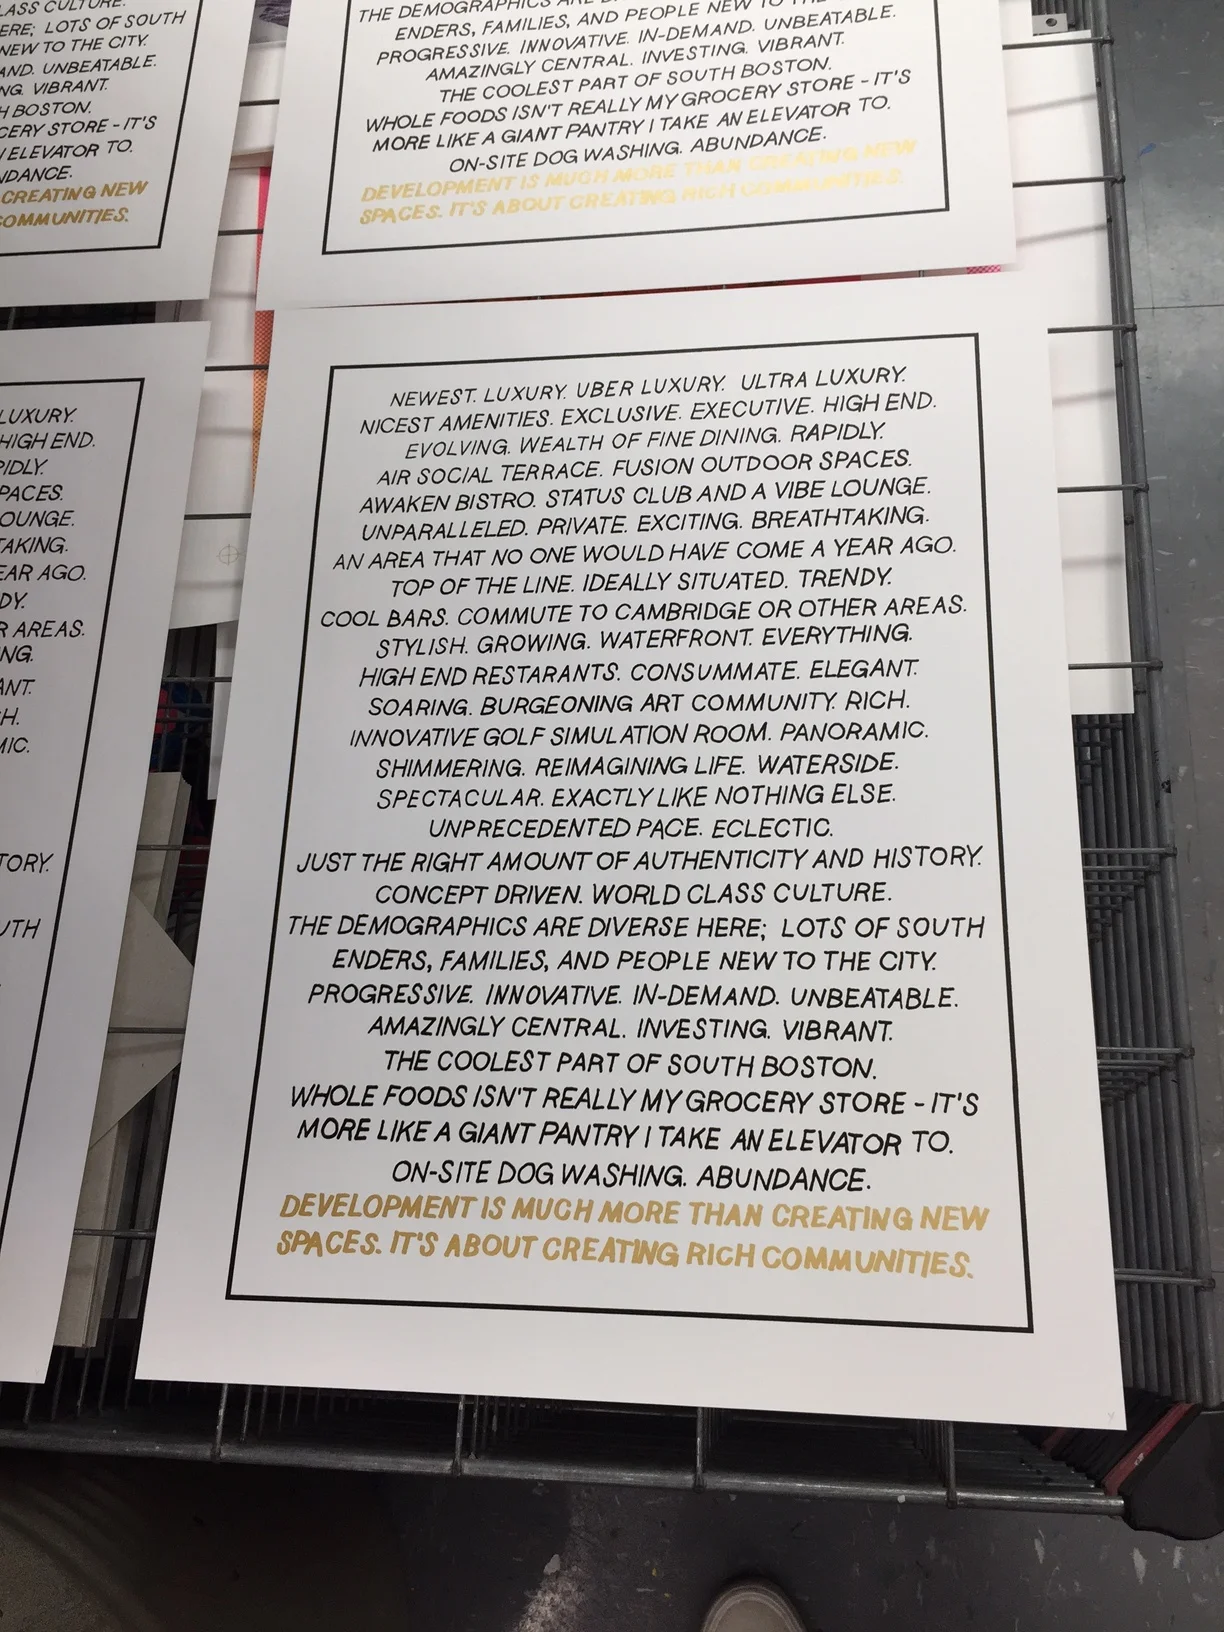 LASS CULTURE.
ERE; LOTS OF SOUTH
NEW TO THE CITY.
AND. UNBEATABLE.
NG. VIBRANT.
H BOSTON.
CERY STORE - IT'S
ELEVATOR TO.
NDANCE.
CREATING NEW
COMMUNITIES.
THE DEMOGRAPHICS ARE
ENDERS, FAMILIES, AND PEOPLE NEW TO THE
PROGRESSIVE. INNOVATIVE. IN-DEMAND. UNBEATABLE.
AMAZINGLY CENTRAL. INVESTING. VIBRANT.
THE COOLEST PART OF SOUTH BOSTON.
WHOLE FOODS ISN'T REALLY MY GROCERY STORE - IT'S
MORE LIKE A GIANT PANTRY I TAKE AN ELEVATOR TO.
ON-SITE DOG WASHING. ABUNDANCE.
DEVELOPMENT IS MUCH MORE THAN CREATING NEW
SPACES. IT'S ABOUT CREATING RICH COMMUNITIES.
LUXURY.
HIGH END.
PIDLY.
PACES.
OUNGE.
TAKING.
EAR AGO.
DY.
R AREAS.
NG.
ANT.
H.
MIC.
TORY.
UTH
NEWEST. LUXURY. UBER LUXURY. ULTRA LUXURY.
NICEST AMENITIES. EXCLUSIVE. EXECUTIVE. HIGH END.
EVOLVING. WEALTH OF FINE DINING. RAPIDLY.
AIR SOCIAL TERRACE. FUSION OUTDOOR SPACES.
AWAKEN BISTRO. STATUS CLUB AND A VIBE LOUNGE.
UNPARALLELED. PRIVATE. EXCITING. BREATHTAKING.
AN AREA THAT NO ONE WOULD HAVE COME A YEAR AGO.
TOP OF THE LINE. IDEALLY SITUATED. TRENDY.
COOL BARS. COMMUTE TO CAMBRIDGE OR OTHER AREAS.
STYLISH. GROWING. WATERFRONT. EVERYTHING.
HIGH END RESTARANTS. CONSUMMATE. ELEGANT.
SOARING. BURGEONING ART COMMUNITY. RICH.
INNOVATIVE GOLF SIMULATION ROOM. PANORAMIC.
SHIMMERING. REIMAGINING LIFE. WATERSIDE.
SPECTACULAR. EXACTLY LIKE NOTHING ELSE.
UNPRECEDENTED PACE. ECLECTIC.
JUST THE RIGHT AMOUNT OF AUTHENTICITY AND HISTORY.
CONCEPT DRIVEN. WORLD CLASS CULTURE.
THE DEMOGRAPHICS ARE DIVERSE HERE; LOTS OF SOUTH
ENDERS, FAMILIES, AND PEOPLE NEW TO THE CITY.
PROGRESSIVE. INNOVATIVE. IN-DEMAND. UNBEATABLE.
AMAZINGLY CENTRAL. INVESTING. VIBRANT.
THE COOLEST PART OF SOUTH BOSTON.
WHOLE FOODS ISN'T REALLY MY GROCERY STORE - IT'S
MORE LIKE A GIANT PANTRY I TAKE AN ELEVATOR TO.
ON-SITE DOG WASHING. ABUNDANCE.
DEVELOPMENT IS MUCH MORE THAN CREATING NEW
SPACES. IT'S ABOUT CREATING RICH COMMUNITIES.